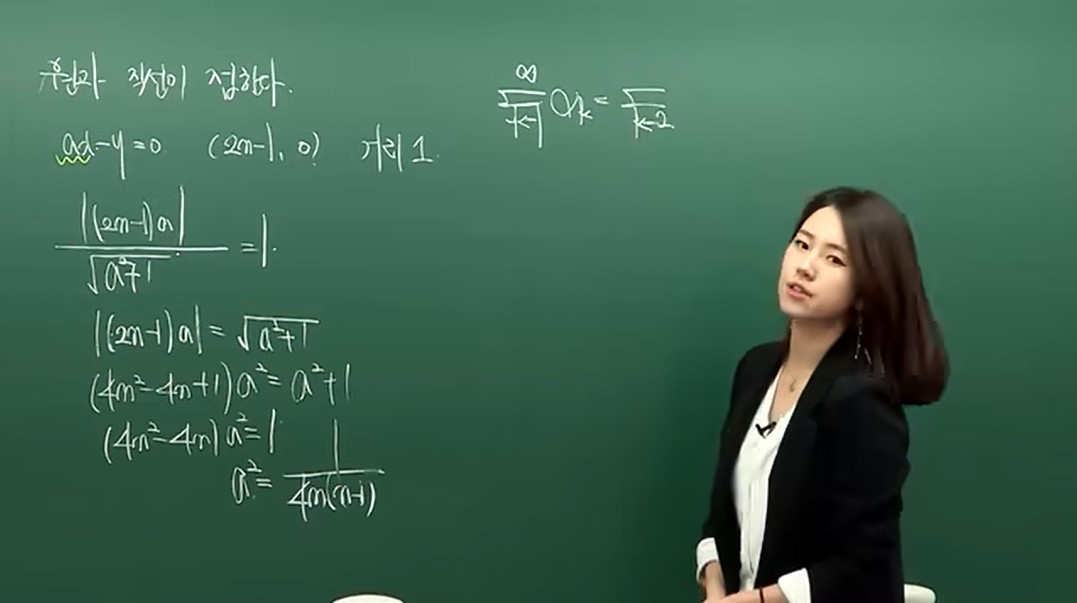 주황과 직선이 접한다.
ax-y=0 (2n-1, 0) 거리 1.
|(2n-1)a| / √(a²+1) = 1.
|(2n-1)a| = √(a²+1)
(4n²-4n+1)a² = a²+1
(4n²-4n)a² = 1
a² = 1 / 4n(n-1)
∞ ∑ k=1 ak = ∑ k=2